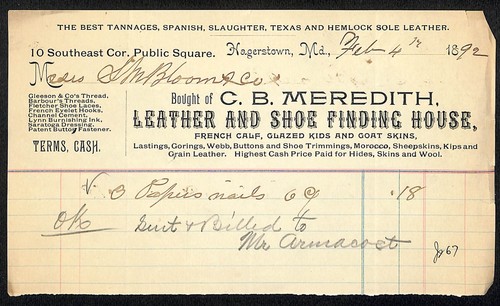 THE BEST TANNAGES, SPANISH, SLAUGHTER, TEXAS AND HEMLOCK SOLE LEATHER.
10 Southeast Cor. Public Square. Hagerstown, Md., Feb 4th 1892
S M Bloom & Co
Bought of C. B. MEREDITH,
LEATHER AND SHOE FINDING HOUSE,
FRENCH CALF, GLAZED KIDS AND GOAT SKINS,
Lastings, Gorings, Webb, Buttons and Shoe Trimmings, Morocco, Sheepskins, Kips and
Grain Leather. Highest Cash Price Paid for Hides, Skins and Wool.
Gleeson & Co's Thread.
Barbour's Threads,
Fletcher Shoe Laces,
French Eyelet Hooks,
Channel Cement,
Lynn Burnishing Ink,
Saratoga Dressing,
Patent Button Fastener.
TERMS, CASH.
3 Papers nails 6c 18
OK Sent & Billed to
Mr Armacost
67